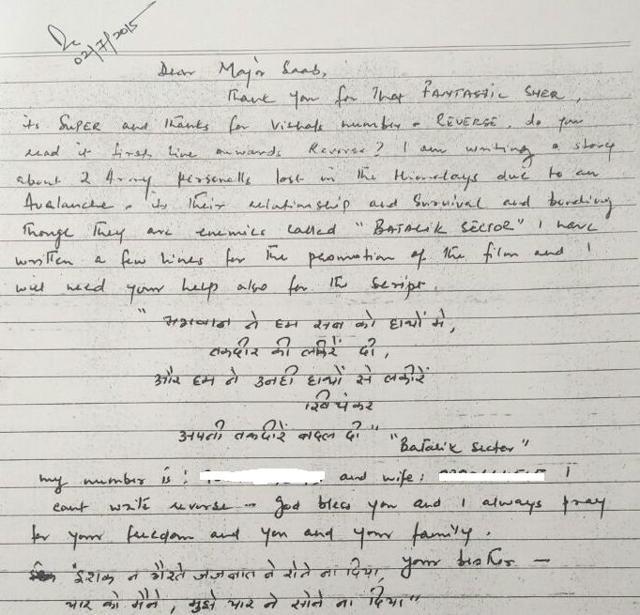 02/7/2015
Dear Major Saab,
Thank you for that FANTASTIC SHER,
its SUPER and thanks for Vishals number - REVERSE, do you
read it first line onwards Reverse? I am writing a story
about 2 Army personells lost in the Himalays due to an
Avalanche. its their relationship and Survival and bonding
though they are enemies called "BATALIK SECTOR" I have
written a few lines for the promotion of the film and I
will need your help also for the script.
"भगवान ने हम सब को हाथों मे,
तकदीर की लकीरें दी,
और हम ने उनही हाथों से लकीरें
खिंचकर
अपनी तकदीरें बदल दी"
"Batalik Sector"
my number is : and wife: I
cant write reverse -- God bless you and I always pray
for your freedom and you and your family.
your brother —
इशक न गैरते जजबात ने रोने ना दिया,
यार को मैंने, मुझे यार ने सोने ना दिया"